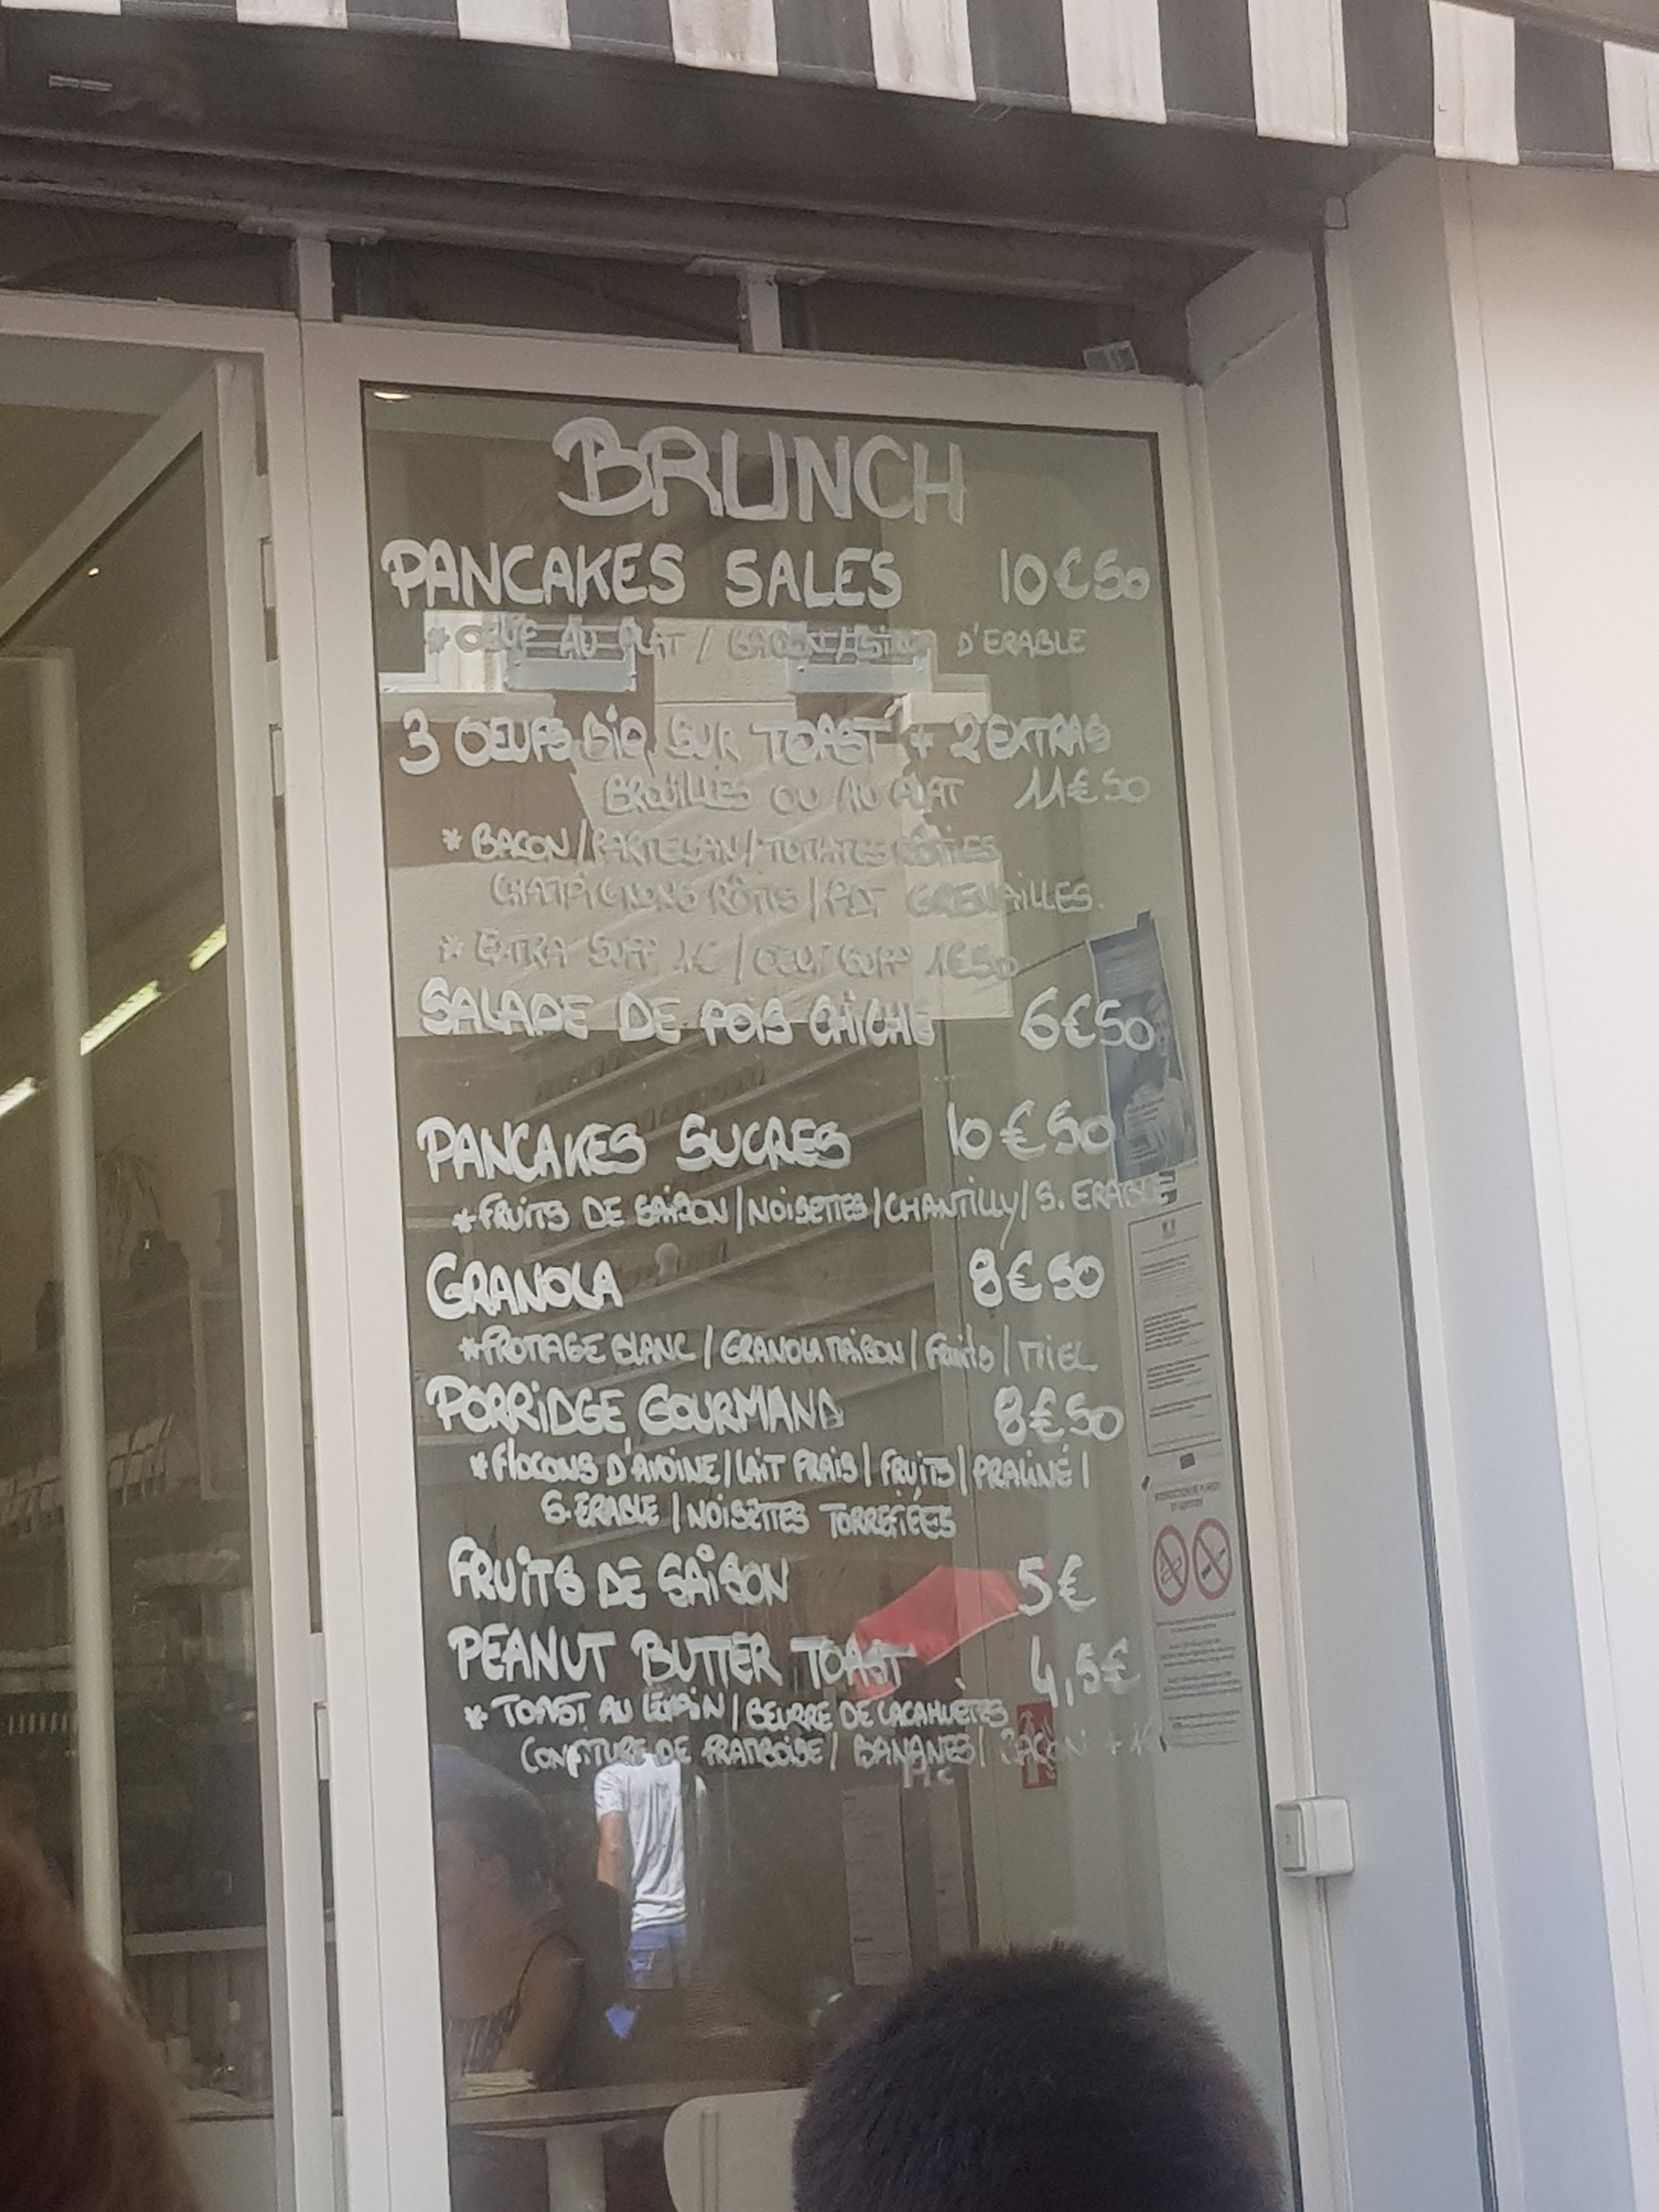 BRUNCH
PANCAKES SALES 10€50
* OEUF AU PLAT / BACON / SIROP D'ERABLE
3 OEUFS BIO SUR TOAST + 2 EXTRAS
BROUILLÉS OU AU PLAT 11€50
* BACON / PARMESAN / TOMATES RÔTIES
CHAMPIGNONS RÔTIS / PDT GRENAILLES.
* EXTRA SUPP 1€ / OEUF SUPP 1€50
SALADE DE POIS CHICHE 6€50
PANCAKES SUCRES 10€50
* FRUITS DE SAISON / NOISETTES / CHANTILLY / S. ERABLE
GRANOLA 8€50
* FROMAGE BLANC / GRANOLA MAISON / FRUITS / MIEL
PORRIDGE GOURMAND 8€50
* FLOCONS D'AVOINE / LAIT FRAIS / FRUITS / PRALINÉ /
S. ERABLE / NOISETTES TORREFIÉES
FRUITS DE SAISON 5€
PEANUT BUTTER TOAST 4,5€
* TOAST AU LEVAIN / BEURRE DE CACAHUÈTES
CONFITURE DE FRAMBOISE / BANANES / BACON +